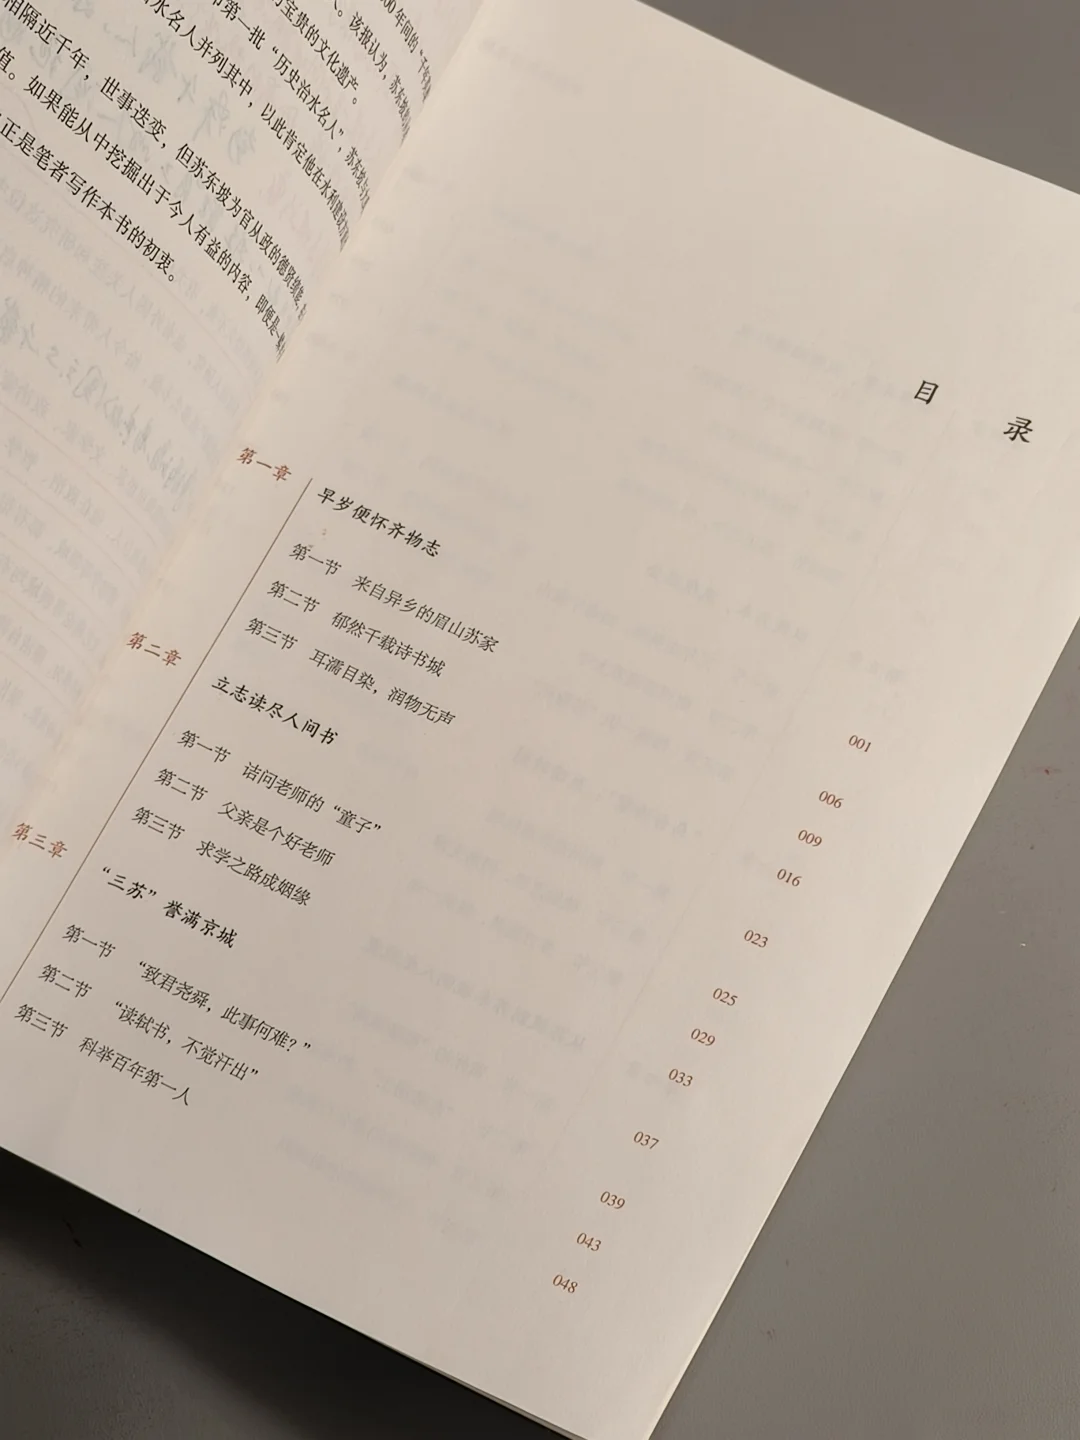 00年间的“千年英
。该报认为，苏东坡的
宝贵的文化遗产。
第一批“历史治水名人”，苏东坡与
水名人并列其中，以此肯定他在水利建设方面
相隔近千年，世事迭变，但苏东坡为官从政的德
值。如果能从中挖掘出于今人有益的内容，即便是一
正是笔者写作本书的初衷。
目 录
第一章 早岁便怀齐物志 001
第一节 来自异乡的眉山苏家 006
第二节 郁然千载诗书城 009
第三节 耳濡目染，润物无声 016
第二章 立志读尽人间书 023
第一节 诘问老师的“童子” 025
第二节 父亲是个好老师 029
第三节 求学之路成姻缘 033
第三章 “三苏”誉满京城 037
第一节 “致君尧舜，此事何难？” 039
第二节 “读轼书，不觉汗出” 043
第三节 科举百年第一人 048